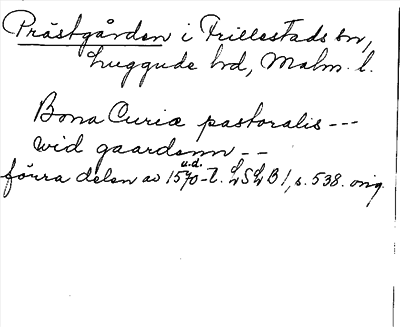 Prästgården i Frillestads sn,
Luggude hd, Malm. l.
Bona Curiæ pastoralis ---
wid gaardenn --
u.d.
förra delen av 1570-t. LSLB 1, s. 538. orig.